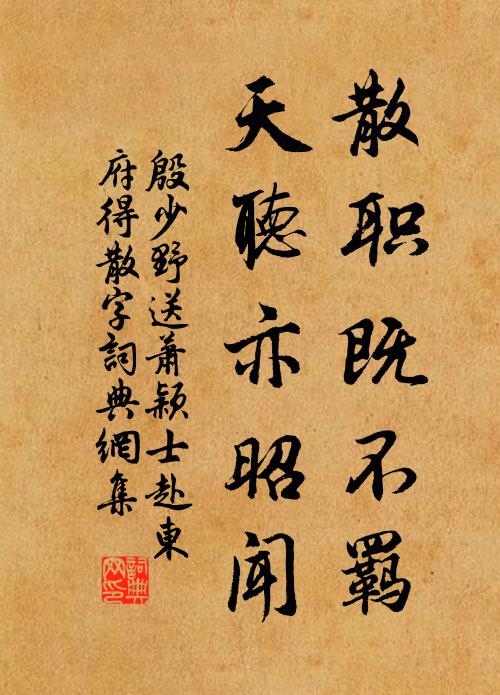 散职既不羁
天聽亦昭闻
殷少野送萧颖士赴東
府得散字詞典網集
詞典网印